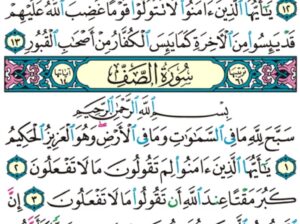 ١٢ يَٰٓأَيُّهَا ٱلَّذِينَ ءَامَنُوا۟ لَا تَتَوَلَّوْا۟ قَوْمًا غَضِبَ ٱللَّهُ عَلَيْهِمْ
قَدْ يَئِسُوا۟ مِنَ ٱلْءَاخِرَةِ كَمَا يَئِسَ ٱلْكُفَّارُ مِنْ أَصْحَٰبِ ٱلْقُبُورِ ١٣
سُورَةُ ٱلصَّفِّ
بِسْمِ ٱللَّهِ ٱلرَّحْمَٰنِ ٱلرَّحِيمِ
سَبَّحَ لِلَّهِ مَا فِى ٱلسَّمَٰوَٰتِ وَمَا فِى ٱلْأَرْضِ وَهُوَ ٱلْعَزِيزُ ٱلْحَكِيمُ
١ يَٰٓأَيُّهَا ٱلَّذِينَ ءَامَنُوا۟ لِمَ تَقُولُونَ مَا لَا تَفْعَلُونَ ٢
كَبُرَ مَقْتًا عِندَ ٱللَّهِ أَن تَقُولُوا۟ مَا لَا تَفْعَلُونَ ٣ إِنَّ